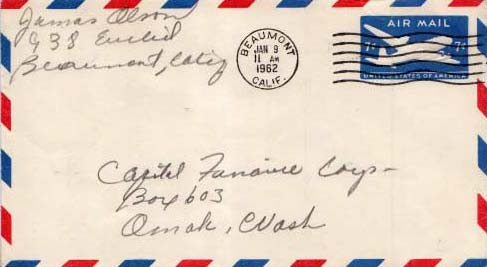 James Olson
938 Euclid
Beaumont, Calif
BEAUMONT
JAN 9
11 AM
1962
CALIF.
AIR MAIL
7¢ 7¢
UNITED STATES OF AMERICA
Capitol Finance Corp-
Box 603
Omak, Wash